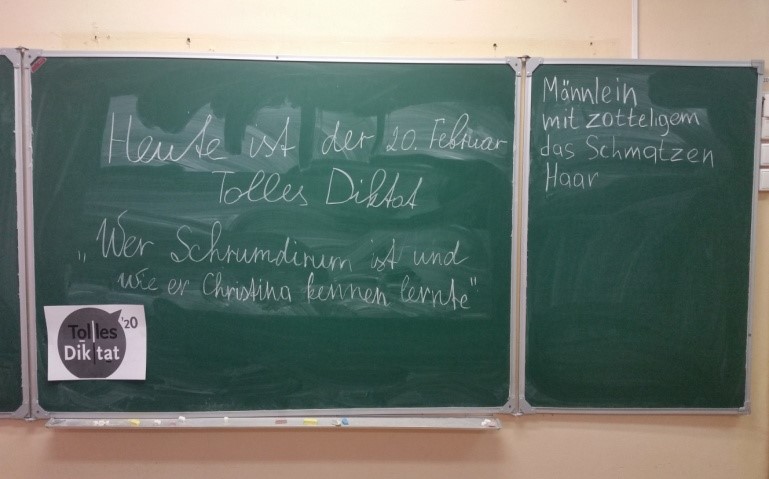 Heute ist der 20. Februar
Tolles Diktat
„Wer Schrumdirum ist und
wie er Christina kennen lernte"
Tolles '20
Diktat
Männlein
mit zotteligem
das Schmatzen
Haar